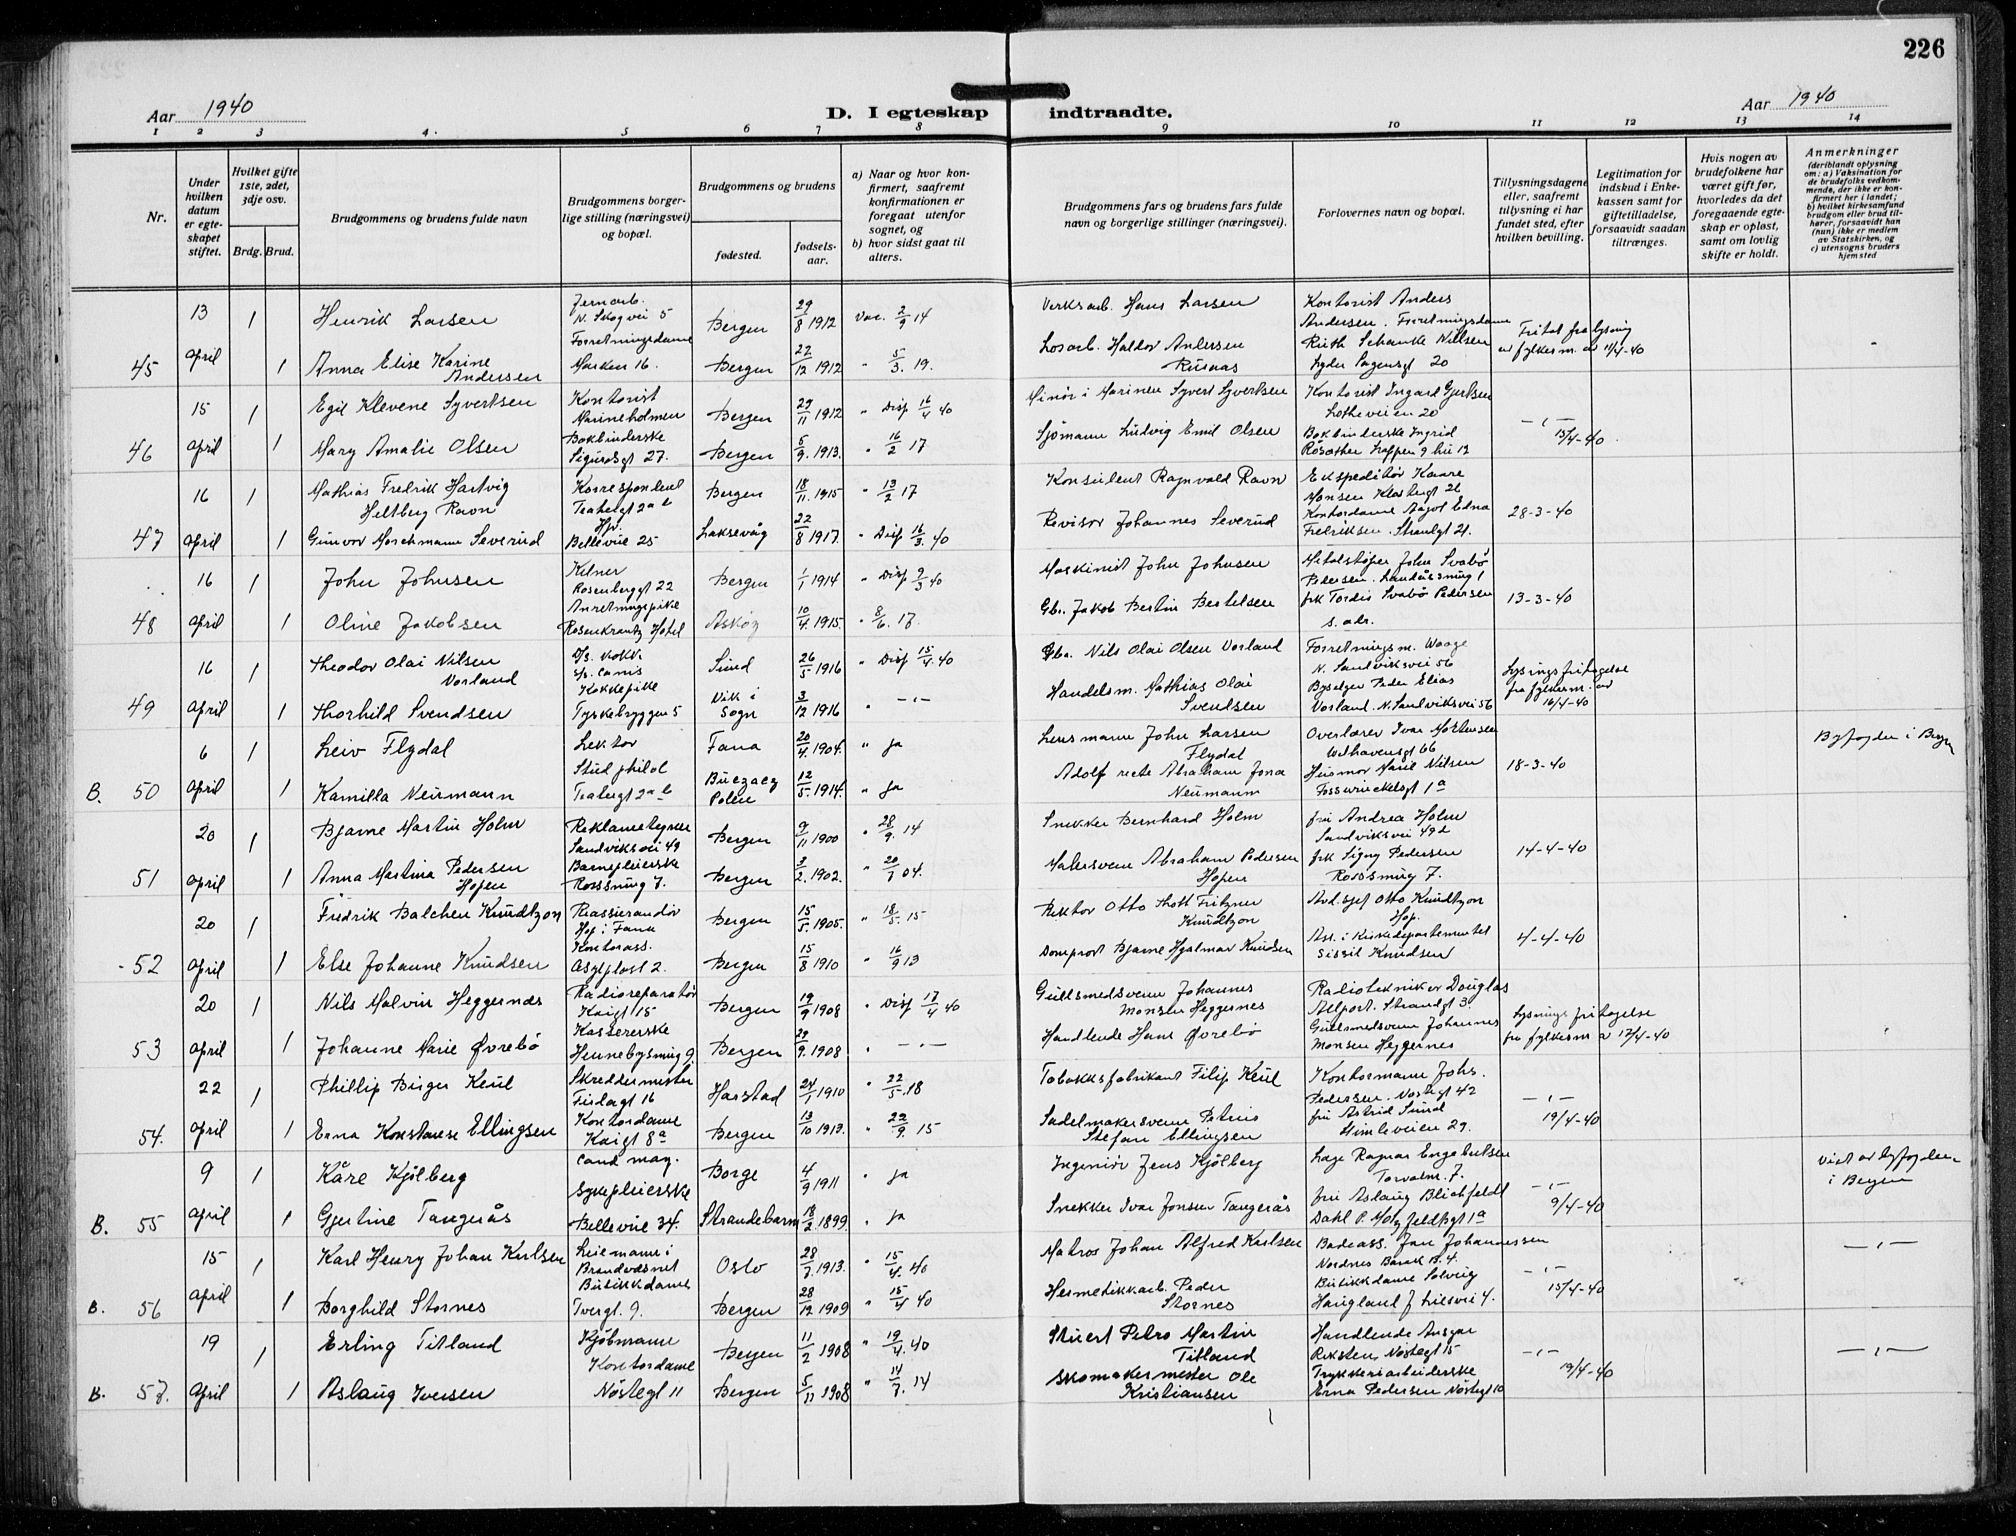 226
Aar 1940
D. I egteskap indtraadte.
Aar 1940
1 2 3 4. 5 6 7 8 9 10 11 12 13 14
Nr.
Under hvilken datum er egteskapet stiftet.
Hvilket gifte 1ste, 2det, 3dje osv.
Brdg. Brud.
Brudgommens og brudens fulde navn
Brudgommens borgerlige stilling (næringsvei) og bopæl.
Brudgommens og brudens
fødested.
fødselsaar.
a) Naar og hvor konfirmert, saafremt konfirmationen er foregaat utenfor sognet, og
b) hvor sidst gaat til alters.
Brudgommens fars og brudens fars fulde navn og borgerlige stillinger (næringsvei).
Forlovernes navn og bopæl.
Tillysningsdagene eller, saafremt tillysning ei har fundet sted, efter hvilken bevilling.
Legitimation for indskud i Enkekassen samt for giftetilladelse, forsaavidt saadan tiltrænges.
Hvis nogen av brudefolkene har været gift før, hvorledes da det foregaaende egteskap er opløst, samt om lovlig skifte er holdt.
Anmerkninger
(deriblandt oplysning om: a) Vaksination for de brudefolks vedkommende, der ikke er konfirmert her i landet; b) hvilket kirkesamfund brudgom eller brud tilhører, forsaavidt han (hun) ikke er medlem av Statskirken, og c) utensogns bruders hjemsted
13 1 Henrik Larsen Jernarb. N. Skogvei 5 Bergen 29/8 1912 Vac. 2/9 14 Verksarb. Hans Larsen Kontorist Anders Andersen. Forretningsdame
45 April 1 Anna Elise Karine Andersen Forretningsdame Marken 16. Bergen 22/12 1912 " 5/3. 19. Losarb. Haldor Andersen Rusnas Ruth Schanke Nilsen Lyder Sagensgt 20 Fritat fra lysning av fylkesm. av 11/4-40
15 1 Egil Klevene Syvertsen Kontorist Marineholmen Bergen 29/11 1912 " Disp 16/4 40 Minör i Marinen Syvert Syvertsen Kontorist Ingard Gjertsen Lotheveien 20
46 April 1 Mary Amalie Olsen Bokbinderske Sigurdsgt 27. Bergen 5/9. 1913. " 16/2 17 Sjömann Ludvig Emil Olsen Bokbinderske Ingrid -"- 15/4-40
16 1 Mathias Fredrik Hartvig Heltberg Ravn Korrespondent Teatergt 2a b Bergen 18/11. 1915 " 13/2 17 Konsulent Ragnvald Ravn Ekspeditör Kaare Monsen Klostergt 26
47 April 1 Gunvor Morchmann Severud Hpr. Bellevue 25 Laksevåg 22/8 1917. " Disp 16/3. 40 Revisor Johannes Severud Kontordame Aagot Edna Fredriksen. Strandgt 21. 28-3-40
16 1 John Johnsen Kelner Rosenberggt 22 Bergen 1/1 1914 " Disp 9/3 40 Maskinist John Johnsen Metalstøper John Svabö Pedersen. Landåssmug 1
48 April 1 Oline Jakobsen Anretningspike Rosenkrantz Hotel Askøy 10/4. 1915. " 8/6. 17. Gbr. Jakob Bertin Bertelsen frk Tordis Svabö Pedersen s. adr. 13-3-40
16 1 Theodor Olai Nilsen Vorland D/S. kokk. S/S. Canis Sund 26/5 1916 " Disp 15/4. 40 Gbr. Nils Olai Olsen Vorland Forretningsm. Waage N. Sandviksvei 56
49 April 1 Thorhild Svendsen Kokkepike Tyskebryggen 5 Vik i Sogn 3/12 1916 " -"- Handelsm. Mathias Olai Svendsen Byselger Peder Elias Vorland. N. Sandviksvei 56 Lysningsfritagelse fra fylkesm. av 16/4-40
6 1 Leiv Flydal Lektor Fana 20/4. 1904. " ja Lensmann John Larsen Flydal Overlærer Ivar Mortensen Welhavensgt 66 Byfogden i Bergen
B. 50 April 1 Kamilla Neumann Stud philol Teatergt 2a b Buczacz Polen 12/5. 1914. " ja Adolf rette Abraham Jona Neumann Husmor Marie Nilsen Fosswinckelsgt 1a 18-3-40
20 1 Bjarne Martin Holm Reklametegner Sandviksvei 49 Bergen 9/11 1900 " 28/9. 14 Snekker Bernhard Holm fru Andrea Holm Sandviksvei 49b
51 April 1 Anna Martina Pedersen Hopen Barnepleierske Rossmug 7. Bergen 3/2. 1902. " 20/1 04. Malersvenn Abraham Pedersen Hopen frk Signy Pedersen Rossmug 7. 14-4-40
20 1 Fredrik Balchen Knudtzon Reassurandör Hop i Fana Bergen 15/5. 1905. " 18/5. 15 Rektor Otto Thott Fritzner Knudtzon Avd. sjef Otto Knudtzon Hop.
52 April 1 Else Johanne Knudsen Kontorass. Asylplass 2. Bergen 15/8 1910 " 16/9 13 Domprost Bjarne Hjalmar Knudsen Ass. i Kirkedepartementet Sissil Knudsen 4-4-40
20 1 Nils Malvin Heggernæs Radioreparatør Kaigt 15 Bergen 19/9 1908 " Disp 17/4 40 Gullsmedsvenn Johannes Monsen Heggernes Radiotekniker Douglas Allport. Strandgt 3
53 April 1 Johanne Marie Øvrebö Kassererske Hennebysmug 9. Bergen 29/9. 1908 " -"- Handlende Hans Øvrebö Gullsmedsvenn Johannes Monsen Heggernes Lysnings fritagelse fra fylkesm a 17/4-40
22 1 Phillip Birger Keul Skreddermester Firdagt 16 Harstad 24/1 1910 " 22/5. 18 Tobakksfabrikant Filip Keul Kontormann Johs. Pedersen. Nöstegt 42
54. April 1 Erna Konstanse Ellingsen Kontordame Kaigt 8a Bergen 13/10 1913. " 22/9. 15 Sadelmakersvenn Petrus Stefan Ellingsen fru Astrid Sund Himleveien 29. -"- 19/4-40
9 1 Kåre Kjölberg Cand mag. Borge 4/9 1911 " ja Ingeniör Jens Kjölberg Lage Ragnar Engebretsen Torvalm. 7. Viet av byfogden i Bergen
B. 55 April 1 Gjertine Tangerås Sykepleierske Bellevue 34. Strandebarm 18/2 1899. " ja Snekker Ivar Jonsen Tangerås fru Aslaug Blichfeldt Dahl P. Motzfeldtsgt 1a -"- 9/4-40
15 1 Karl Henry Johan Karlsen Leiemann i Brandvæsnet Oslo 28/7 1913. " 15/4. 40 Matros Johan Alfred Karlsen Badeass. Jan Johannessen Nordnes Barak B. 4. -"-
B. 56 April 1 Borghild Stornes Butikkdame Tvergt. 9. Bergen 28/12 1909 " 15/4 40 Hermetikkarb. Peder Stornes Butikkdame Solveig Haugland J. Liesvei 4. -"- 15/4-40
19 1 Erling Titland Kjöbmann Bergen 11/2 1908 " 19/4. 40 Stuert Petro Martin Titland Handlende Ansgar Reksten Nöstegt 15 -"-
B. 57. April 1 Aslaug Iversen Kontordame Nöstegt 11 Bergen 5/11 1908 " 14/7. 14 Skomakermester Ole Kristiansen Trykkeriarbeiderske Erna Pedersen Nöstegt 10 -"- 19/4-40